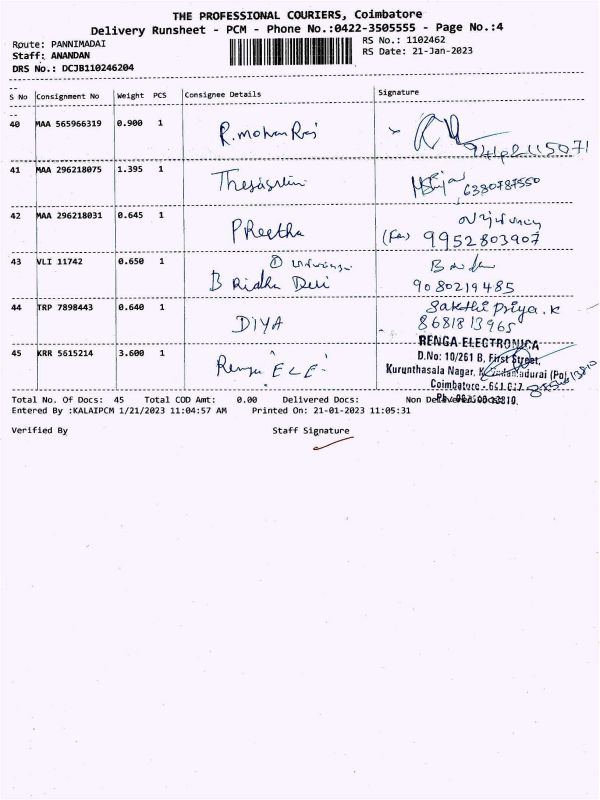 THE PROFESSIONAL COURIERS, Coimbatore
Delivery Runsheet - PCM - Phone No.:0422-3505555 - Page No.:4
Route: PANNIMADAI
RS No.: 1102462
Staff: ANANDAN
RS Date: 21-Jan-2023
DRS No.: DCJB110246204
S No Consignment No Weight PCS Consignee Details Signature
40 MAA 565966319 0.900 1 R.mohan Raj
41 MAA 296218075 1.395 1 6380787550
42 MAA 296218031 0.645 1 PReetha 9952803907
43 VLI 11742 0.650 1 B Ridha Devi 9080219485
44 TRP 7898443 0.640 1 DIYA Sakthi Priya.K 8681813965
45 KRR 5615214 3.600 1 Renga ELE
RENGA ELECTRONICA
D.No: 10/261 B, First Street,
Kurunthasala Nagar,
Coimbatore - 641 017
Total No. Of Docs: 45 Total COD Amt: 0.00 Delivered Docs: Non Delivered Docs:
Entered By :KALAIPCM 1/21/2023 11:04:57 AM Printed On: 21-01-2023 11:05:31
Verified By Staff Signature